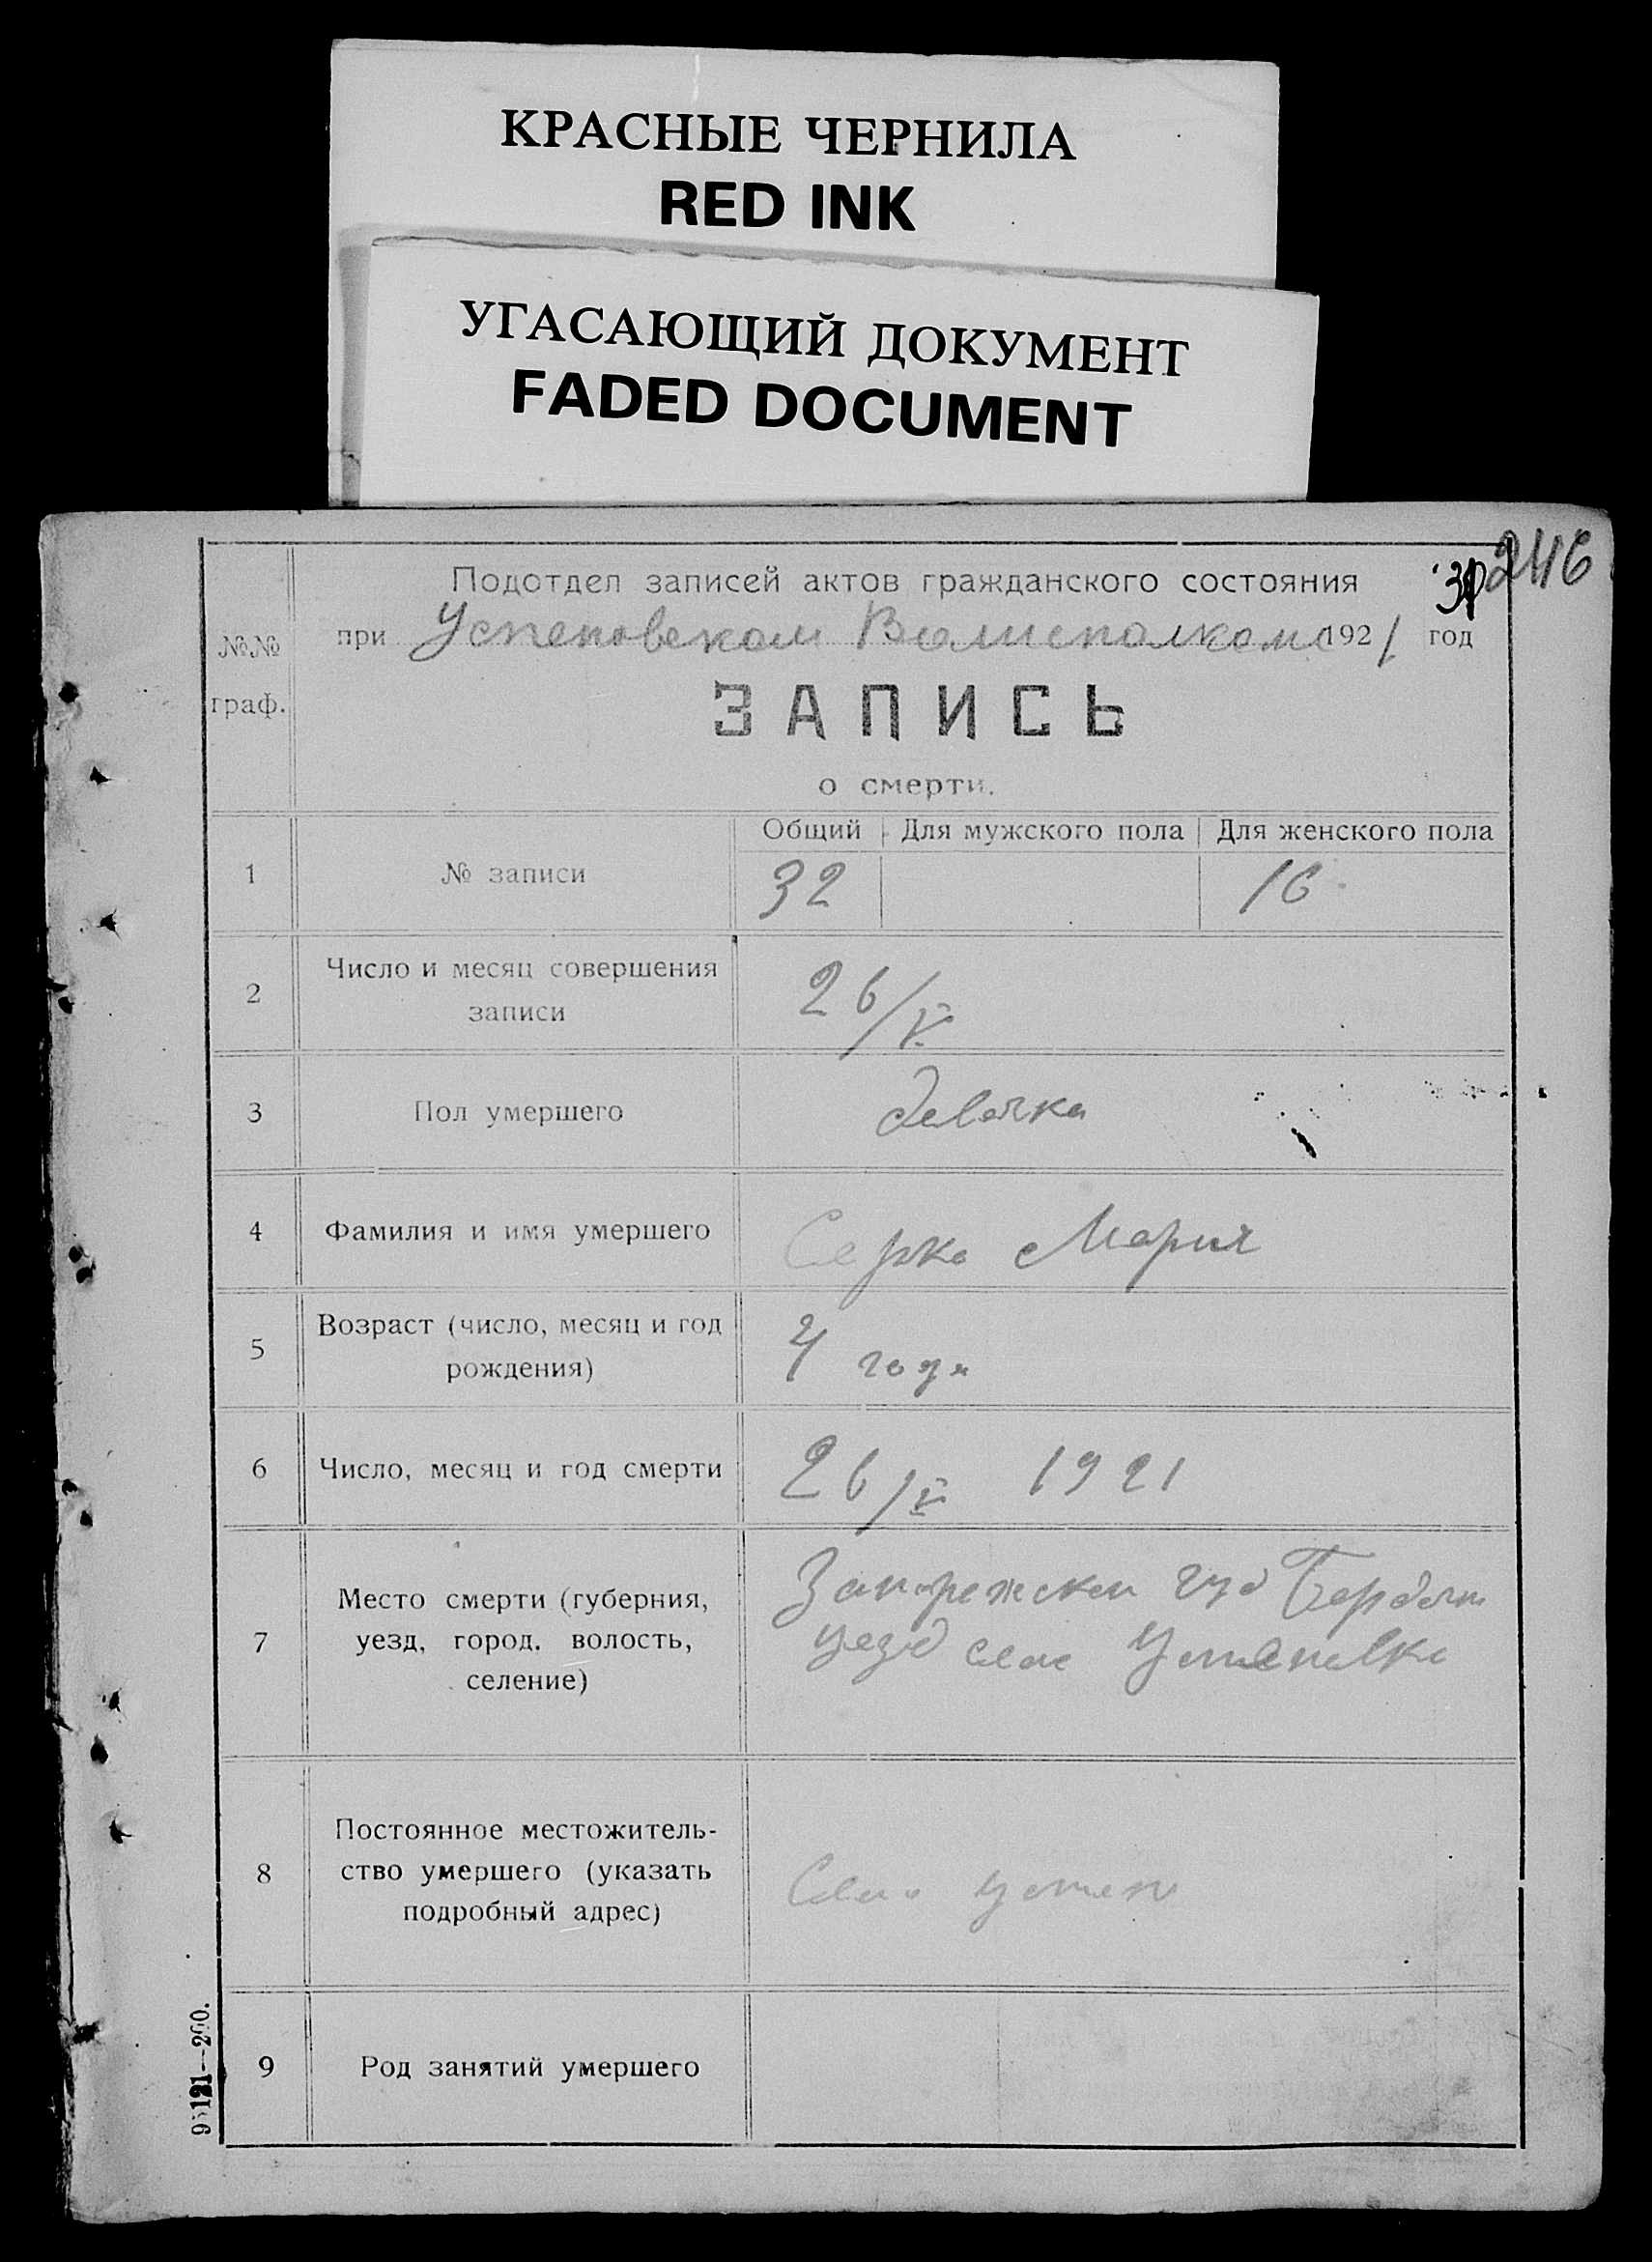 КРАСНЫЕ ЧЕРНИЛА
RED INK
УГАСАЮЩИЙ ДОКУМЕНТ
FADED DOCUMENT
246
Подотдел записей актов гражданского состояния
при Успеновском Волисполкоме 1921 год
№№ граф.
ЗАПИСЬ
о смерти.
Общий Для мужского пола Для женского пола
1 № записи 32 16
2 Число и месяц совершения
записи 26/V
3 Пол умершего девочка
4 Фамилия и имя умершего Серко Мария
5 Возраст (число, месяц и год
рождения) 4 года
6 Число, месяц и год смерти 26/V 1921
7 Место смерти (губерния,
уезд, город, волость,
селение)
Запорежской губ Бердян
уезд село Успеновка
8 Постоянное местожитель-
ство умершего (указать
подробный адрес)
Село Успен
9 Род занятий умершего